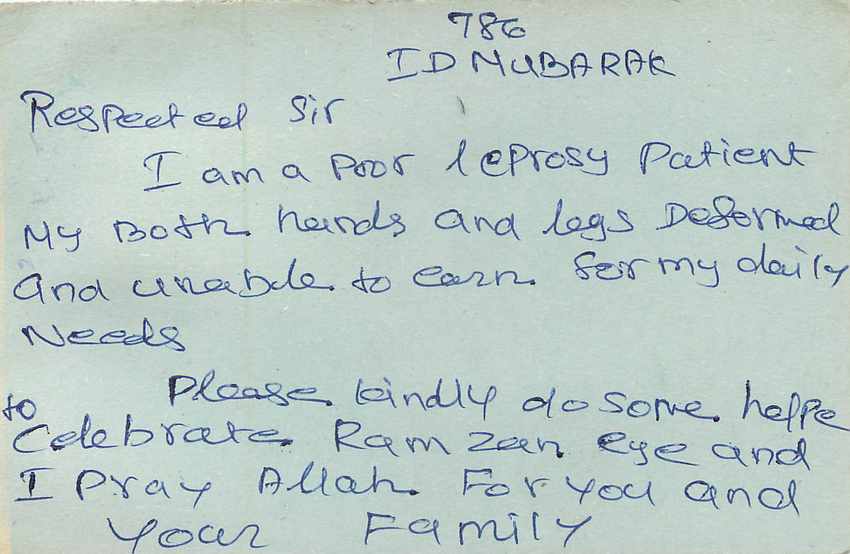 786
ID MUBARAK
Respected Sir
I am a Poor leprosy Patient
My Both hands and legs Deformed
and unable to earn for my daily
Needs
Please kindly do some helpe
to
Celebrate Ramzan eye and
I Pray Allah For you and
your Family